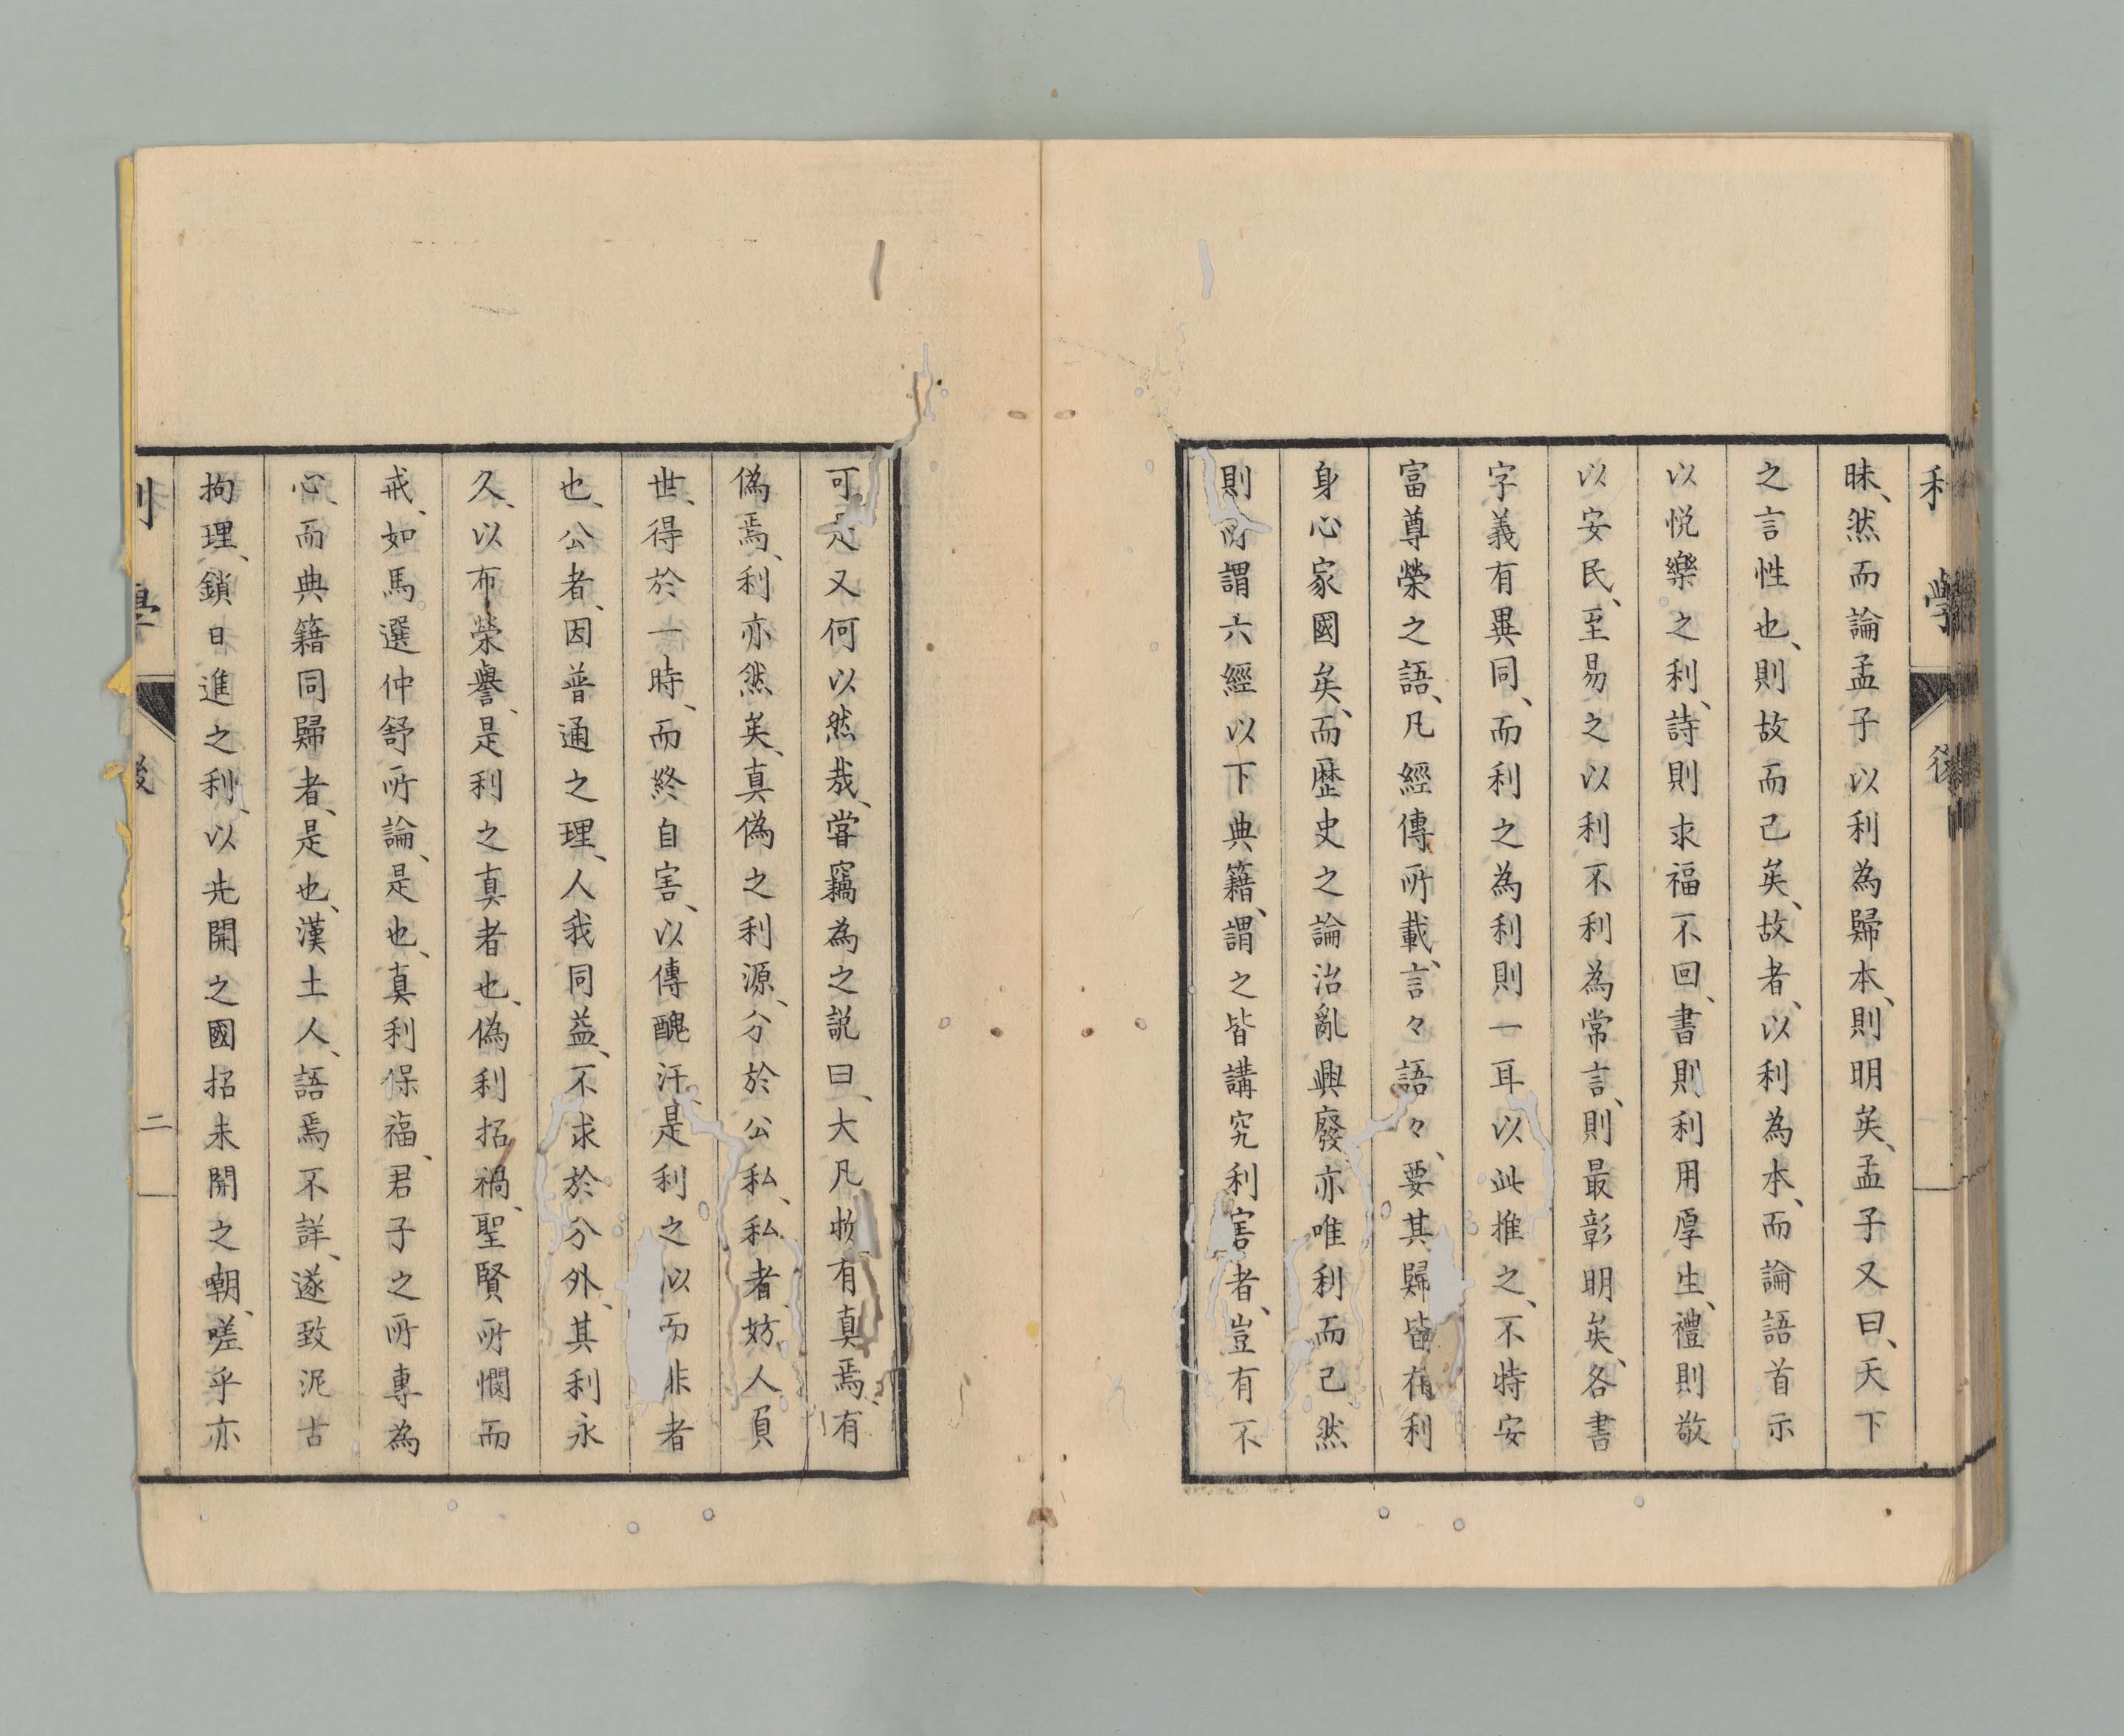 昧、然而論孟子以利為歸本、則明矣、孟子又曰、天下
之言性也、則故而已矣、故者、以利為本、而論語首示
以悦樂之利、詩則求福不回、書則利用厚生、禮則敬
以安民、至易之以利不利為常言、則最彰明矣、各書
字義有異同、而利之為利則一耳以此推之、不特安
富尊榮之語、凡經傳所載、言々語々、要其歸皆在利
身心家國矣、而歴史之論治亂興廢、亦唯利而已然
則所謂六經以下典籍、謂之皆講究利害者、豈有不
可、是又何以然哉、嘗竊為之説曰、大凡物有真焉、有
偽焉、利亦然矣、真偽之利源、分於公私、私者、妨人負
世、得於一時、而終自害、以傳醜汗、是利之似而非者
也、公者、因普通之理、人我同益、不求於分外、其利永
久、以布榮譽、是利之真者也、偽利招禍、聖賢所憫而
戒、如馬選仲舒所論、是也、真利保福、君子之所專為
心、而典籍同歸者、是也、漢土人、語焉不詳、遂致泥古
拘理、鎖日進之利、以先開之國招未開之朝、嗟乎亦
二